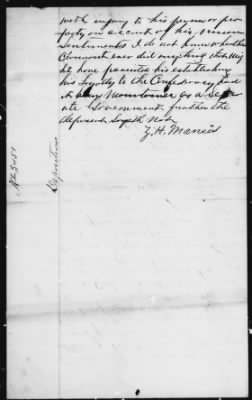 with injury to his person or pro
perty on account of his Union
sentiments I do not know whether
Claimant ever did anything that mig
ht have prevented his establishing
his Loyalty to the Confederacy had
it been maintained as a sepr
ate Government further the
deponent Sayeth Not
Z. H. Manees
Depositions